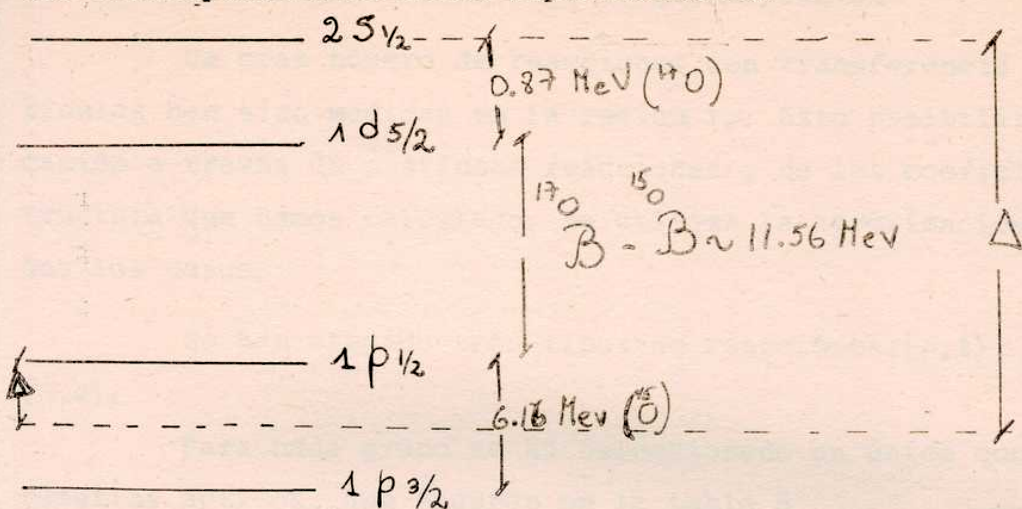 2 S 1/2
0.87 MeV (¹⁷O)
1 d 5/2
¹⁷O ¹⁵O
B - B ~ 11.56 MeV
Δ
1 p 1/2
Δ
(¹⁵O)
1 p 3/2